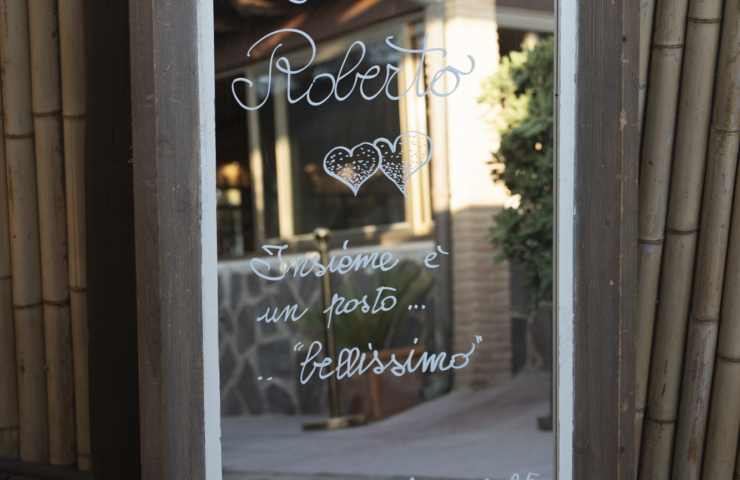 Roberto
Insiéme è
un posto...
.. "bellissimo"